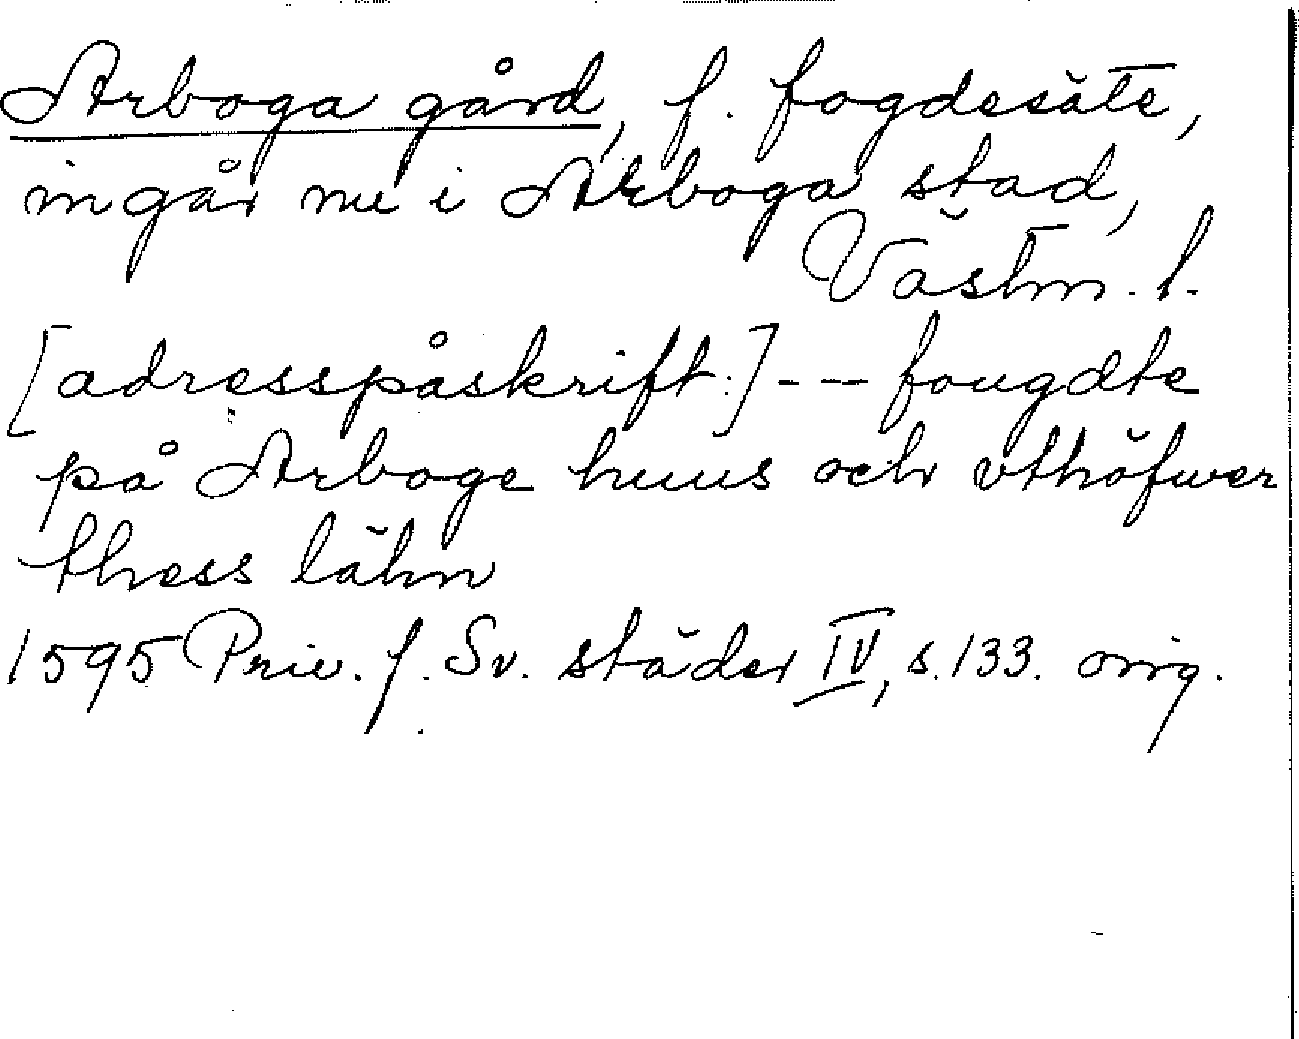 Arboga gård, f. fogdesäte,
ingår nu i Arboga stad,
Västm. l.
[adresspåskrift:] --- fougdte
på Arboge huus och vthöfwer
thess lähn
1595 Priv. f. Sv. städer IV, s. 133. orig.